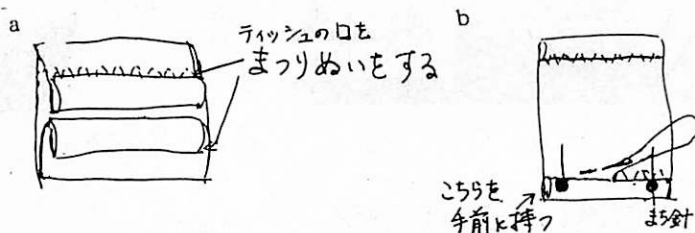 a
ティッシュの口を
まつりぬいをする
b
こちらを
手前に持つ
まち針